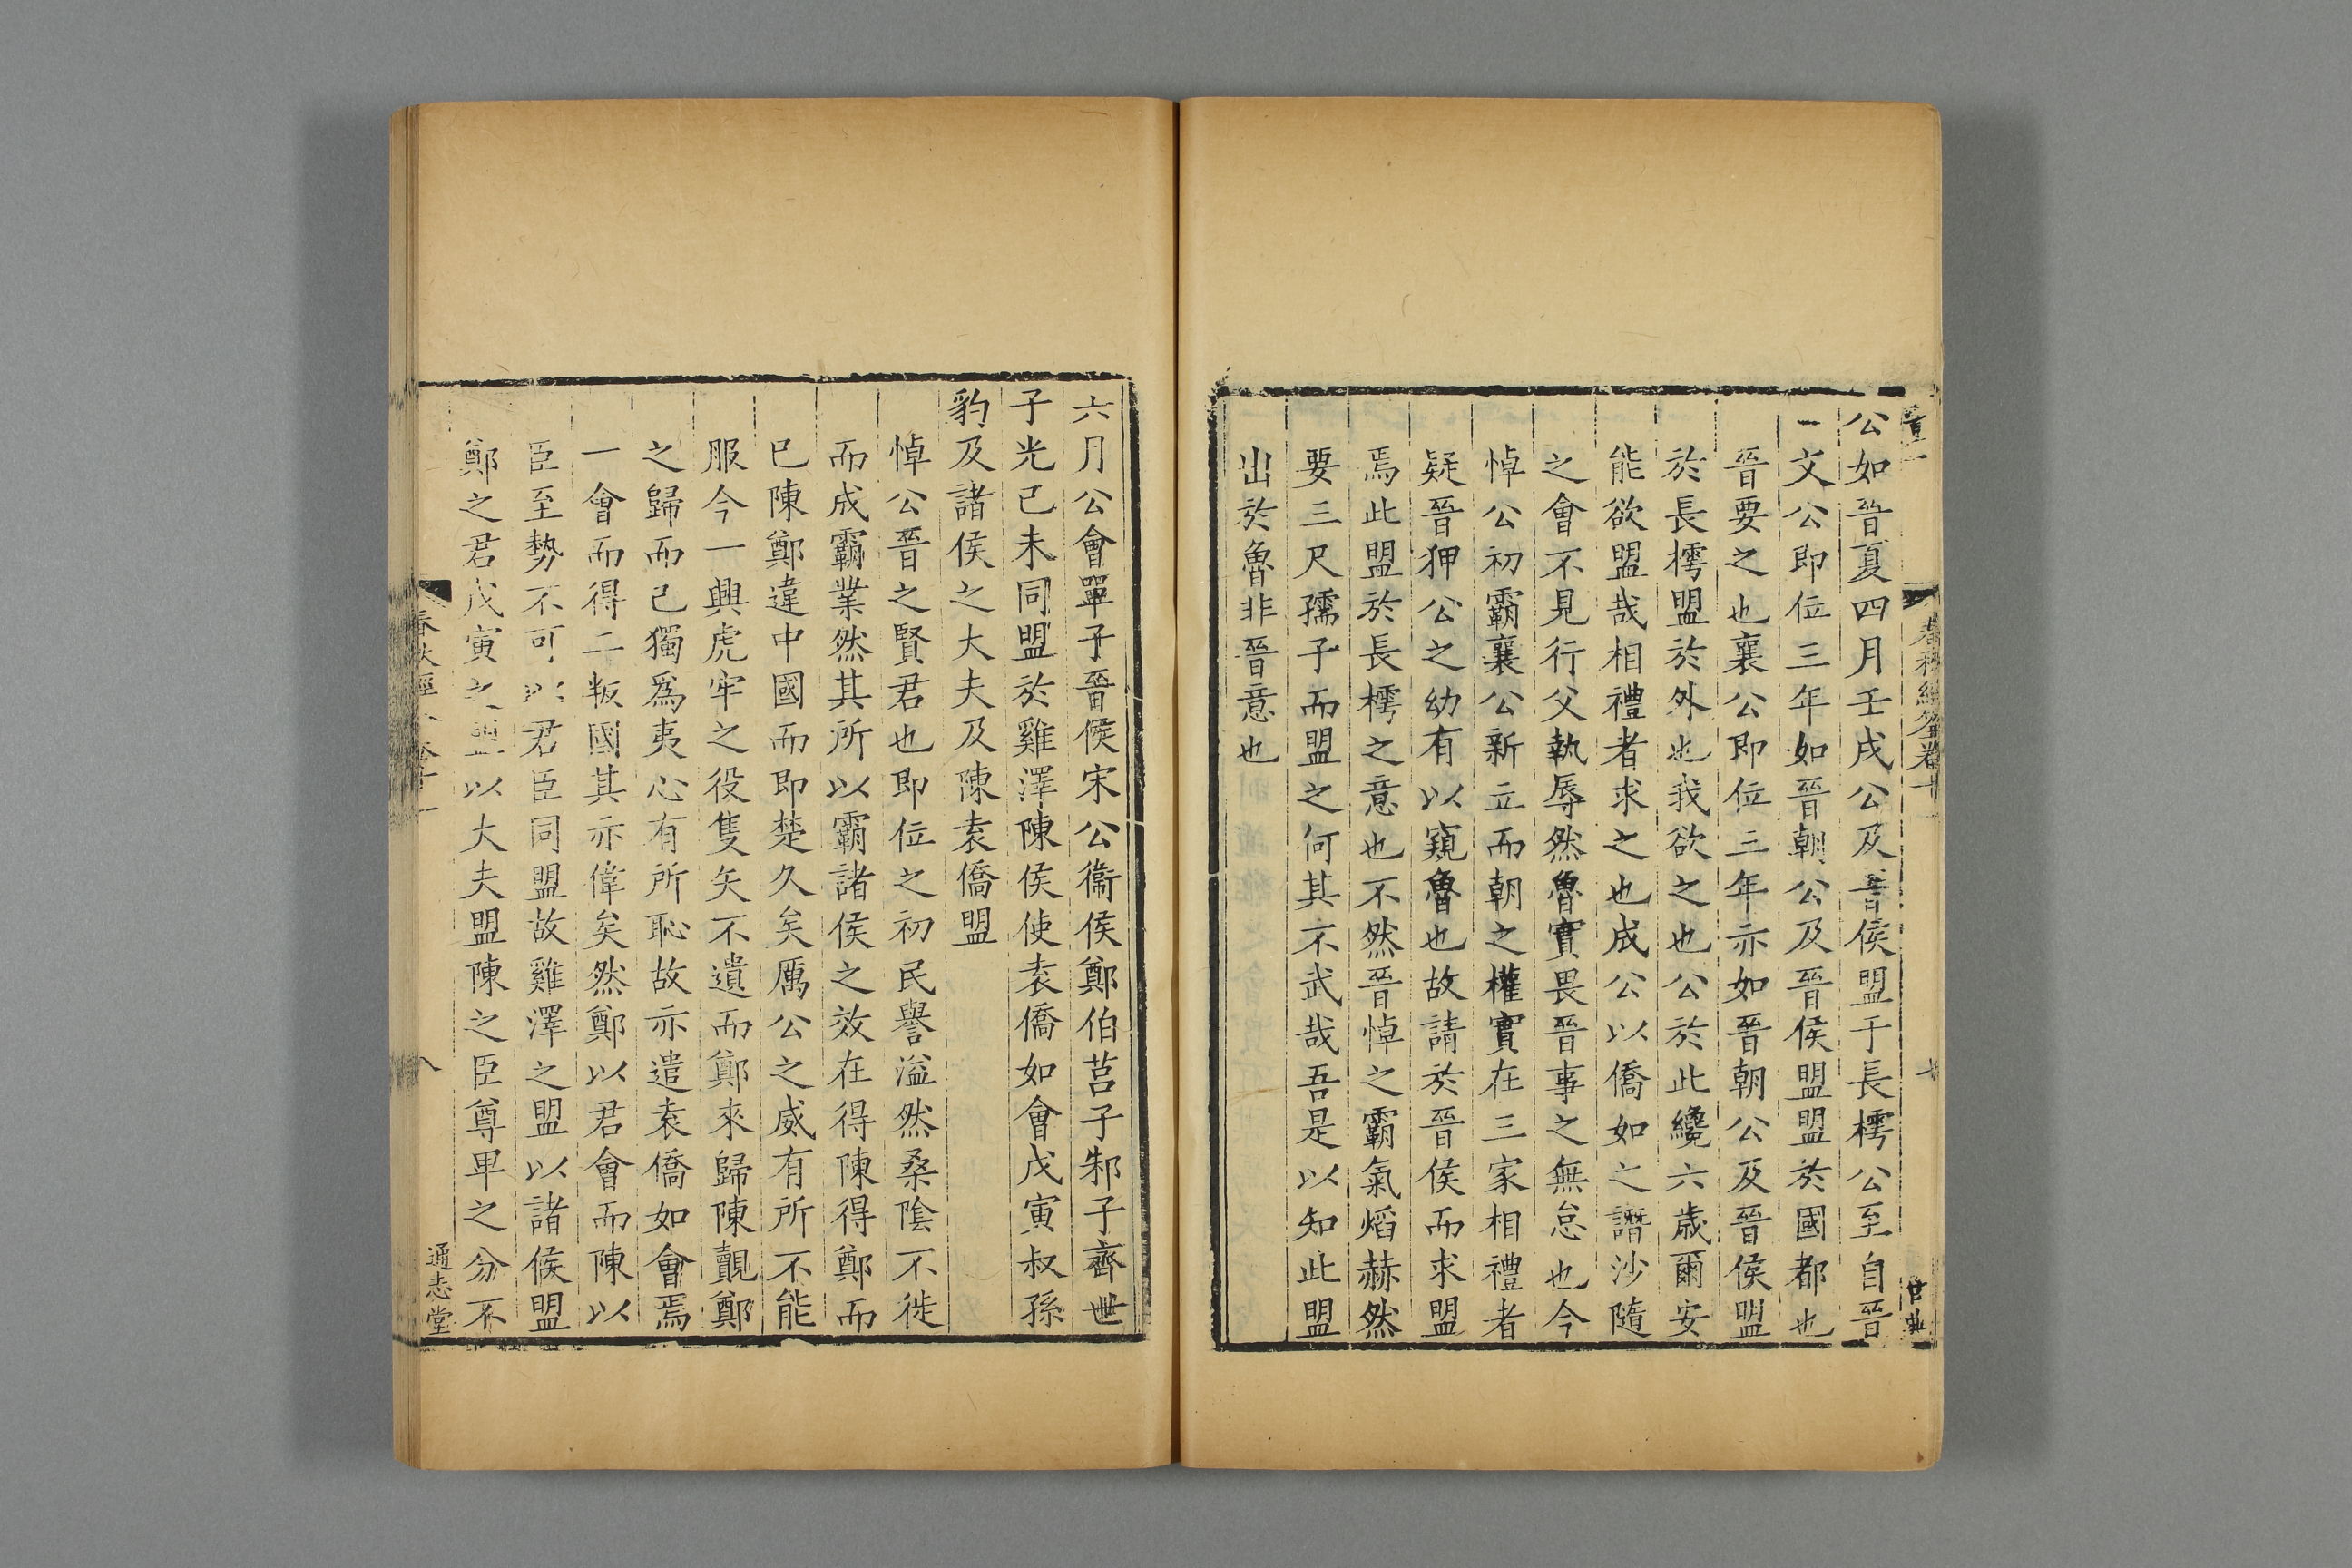 公如晉夏四月壬戌公及晉侯盟于長樗公至自晉
文公即位三年如晉朝公及晉侯盟盟於國都也
晉要之也襄公即位三年亦如晉朝公及晉侯盟
於長樗盟於外也我欲之也公於此纔六歲爾安
能欲盟哉相禮者求之也成公以僑如之譖沙隨
之會不見行父執辱然魯實畏晉事之無怠也今
悼公初霸襄公新立而朝之權實在三家相禮者
疑晉狎公之幼有以窺魯也故請於晉侯而求盟
焉此盟於長樗之意也不然晉悼之霸氣熖赫然
要三尺孺子而盟之何其不武哉吾是以知此盟
出於魯非晉意也
六月公會單子晉侯宋公衞侯鄭伯莒子邾子齊世
子光己未同盟於雞澤陳侯使袁僑如會戊寅叔孫
豹及諸侯之大夫及陳袁僑盟
悼公晉之賢君也即位之初民譽溢然桑陰不徙
而成霸業然其所以霸諸侯之效在得陳得鄭而
已陳鄭違中國而即楚久矣厲公之威有所不能
服今一興虎牢之役隻矢不遺而鄭來歸陳覩鄭
之歸而己獨爲夷心有所恥故亦遣袁僑如會焉
一會而得二叛國其亦偉矣然鄭以君會而陳以
臣至勢不可以君臣同盟故雞澤之盟以諸侯盟
鄭之君戊寅之盟以大夫盟陳之臣尊卑之分不
通志堂